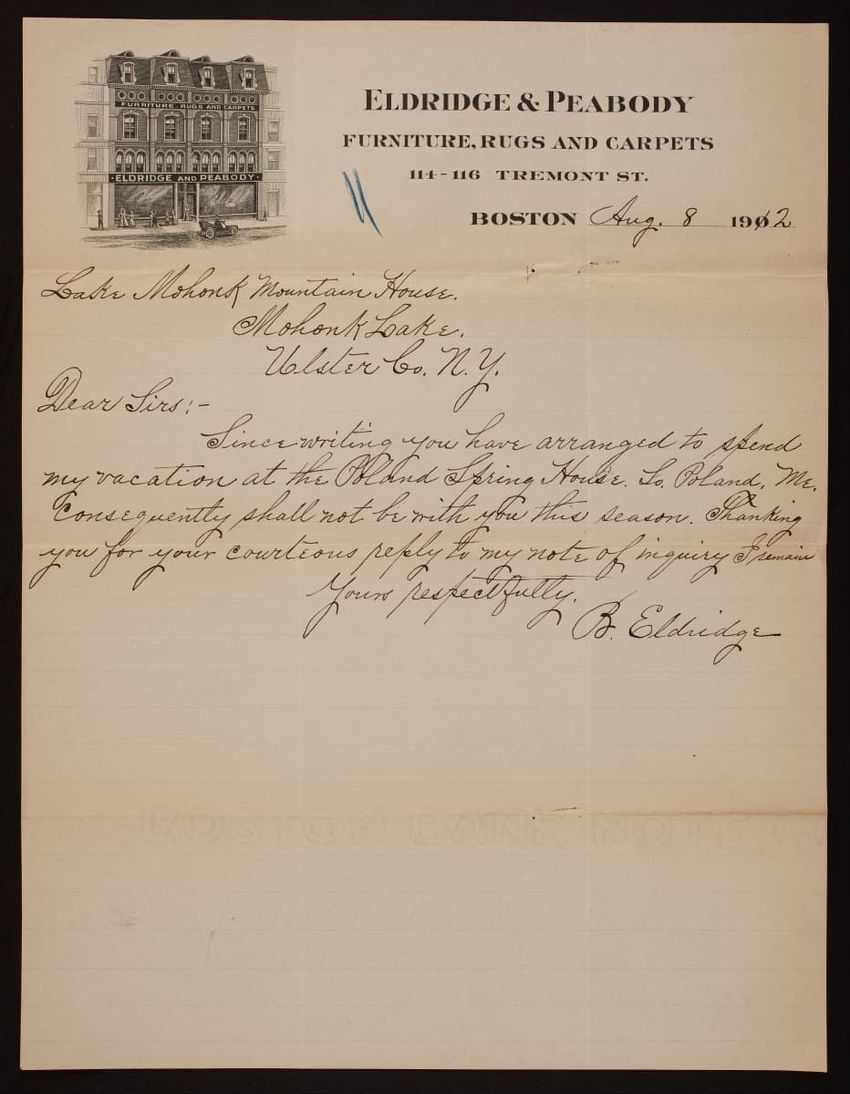 FURNITURE RUGS AND CARPETS
ELDRIDGE AND PEABODY
ELDRIDGE & PEABODY
FURNITURE, RUGS AND CARPETS
114-116 TREMONT ST.
BOSTON Aug. 8 1912
Lake Mohonk Mountain House.
Mohonk Lake.
Ulster Co. N.Y.
Dear Sirs:-
Since writing you have arranged to spend
my vacation at the Poland Spring House. So. Poland, Me.
Consequently shall not be with you this season. Thanking
you for your courteous reply to my note of inquiry I remain
Yours respectfully.
B. Eldridge